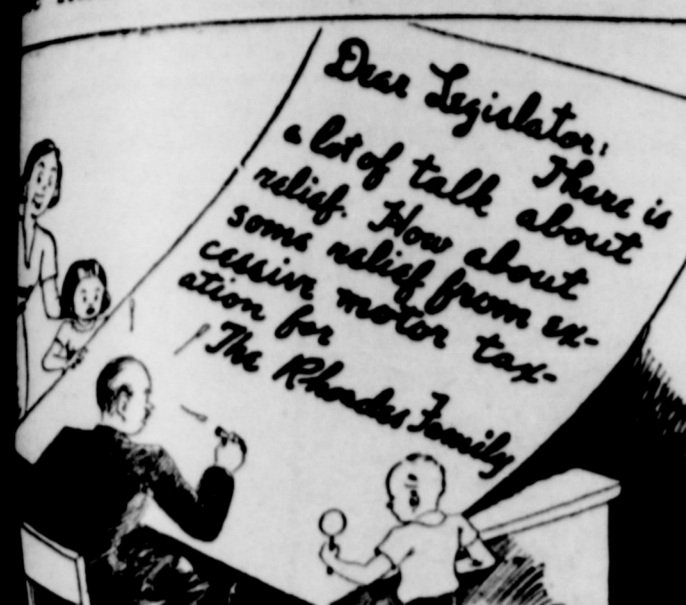 Dear Legislator:
There is
a lot of talk about
relief. How about
some relief from ex-
cessive motor tax-
ation for
The Rhodes Family